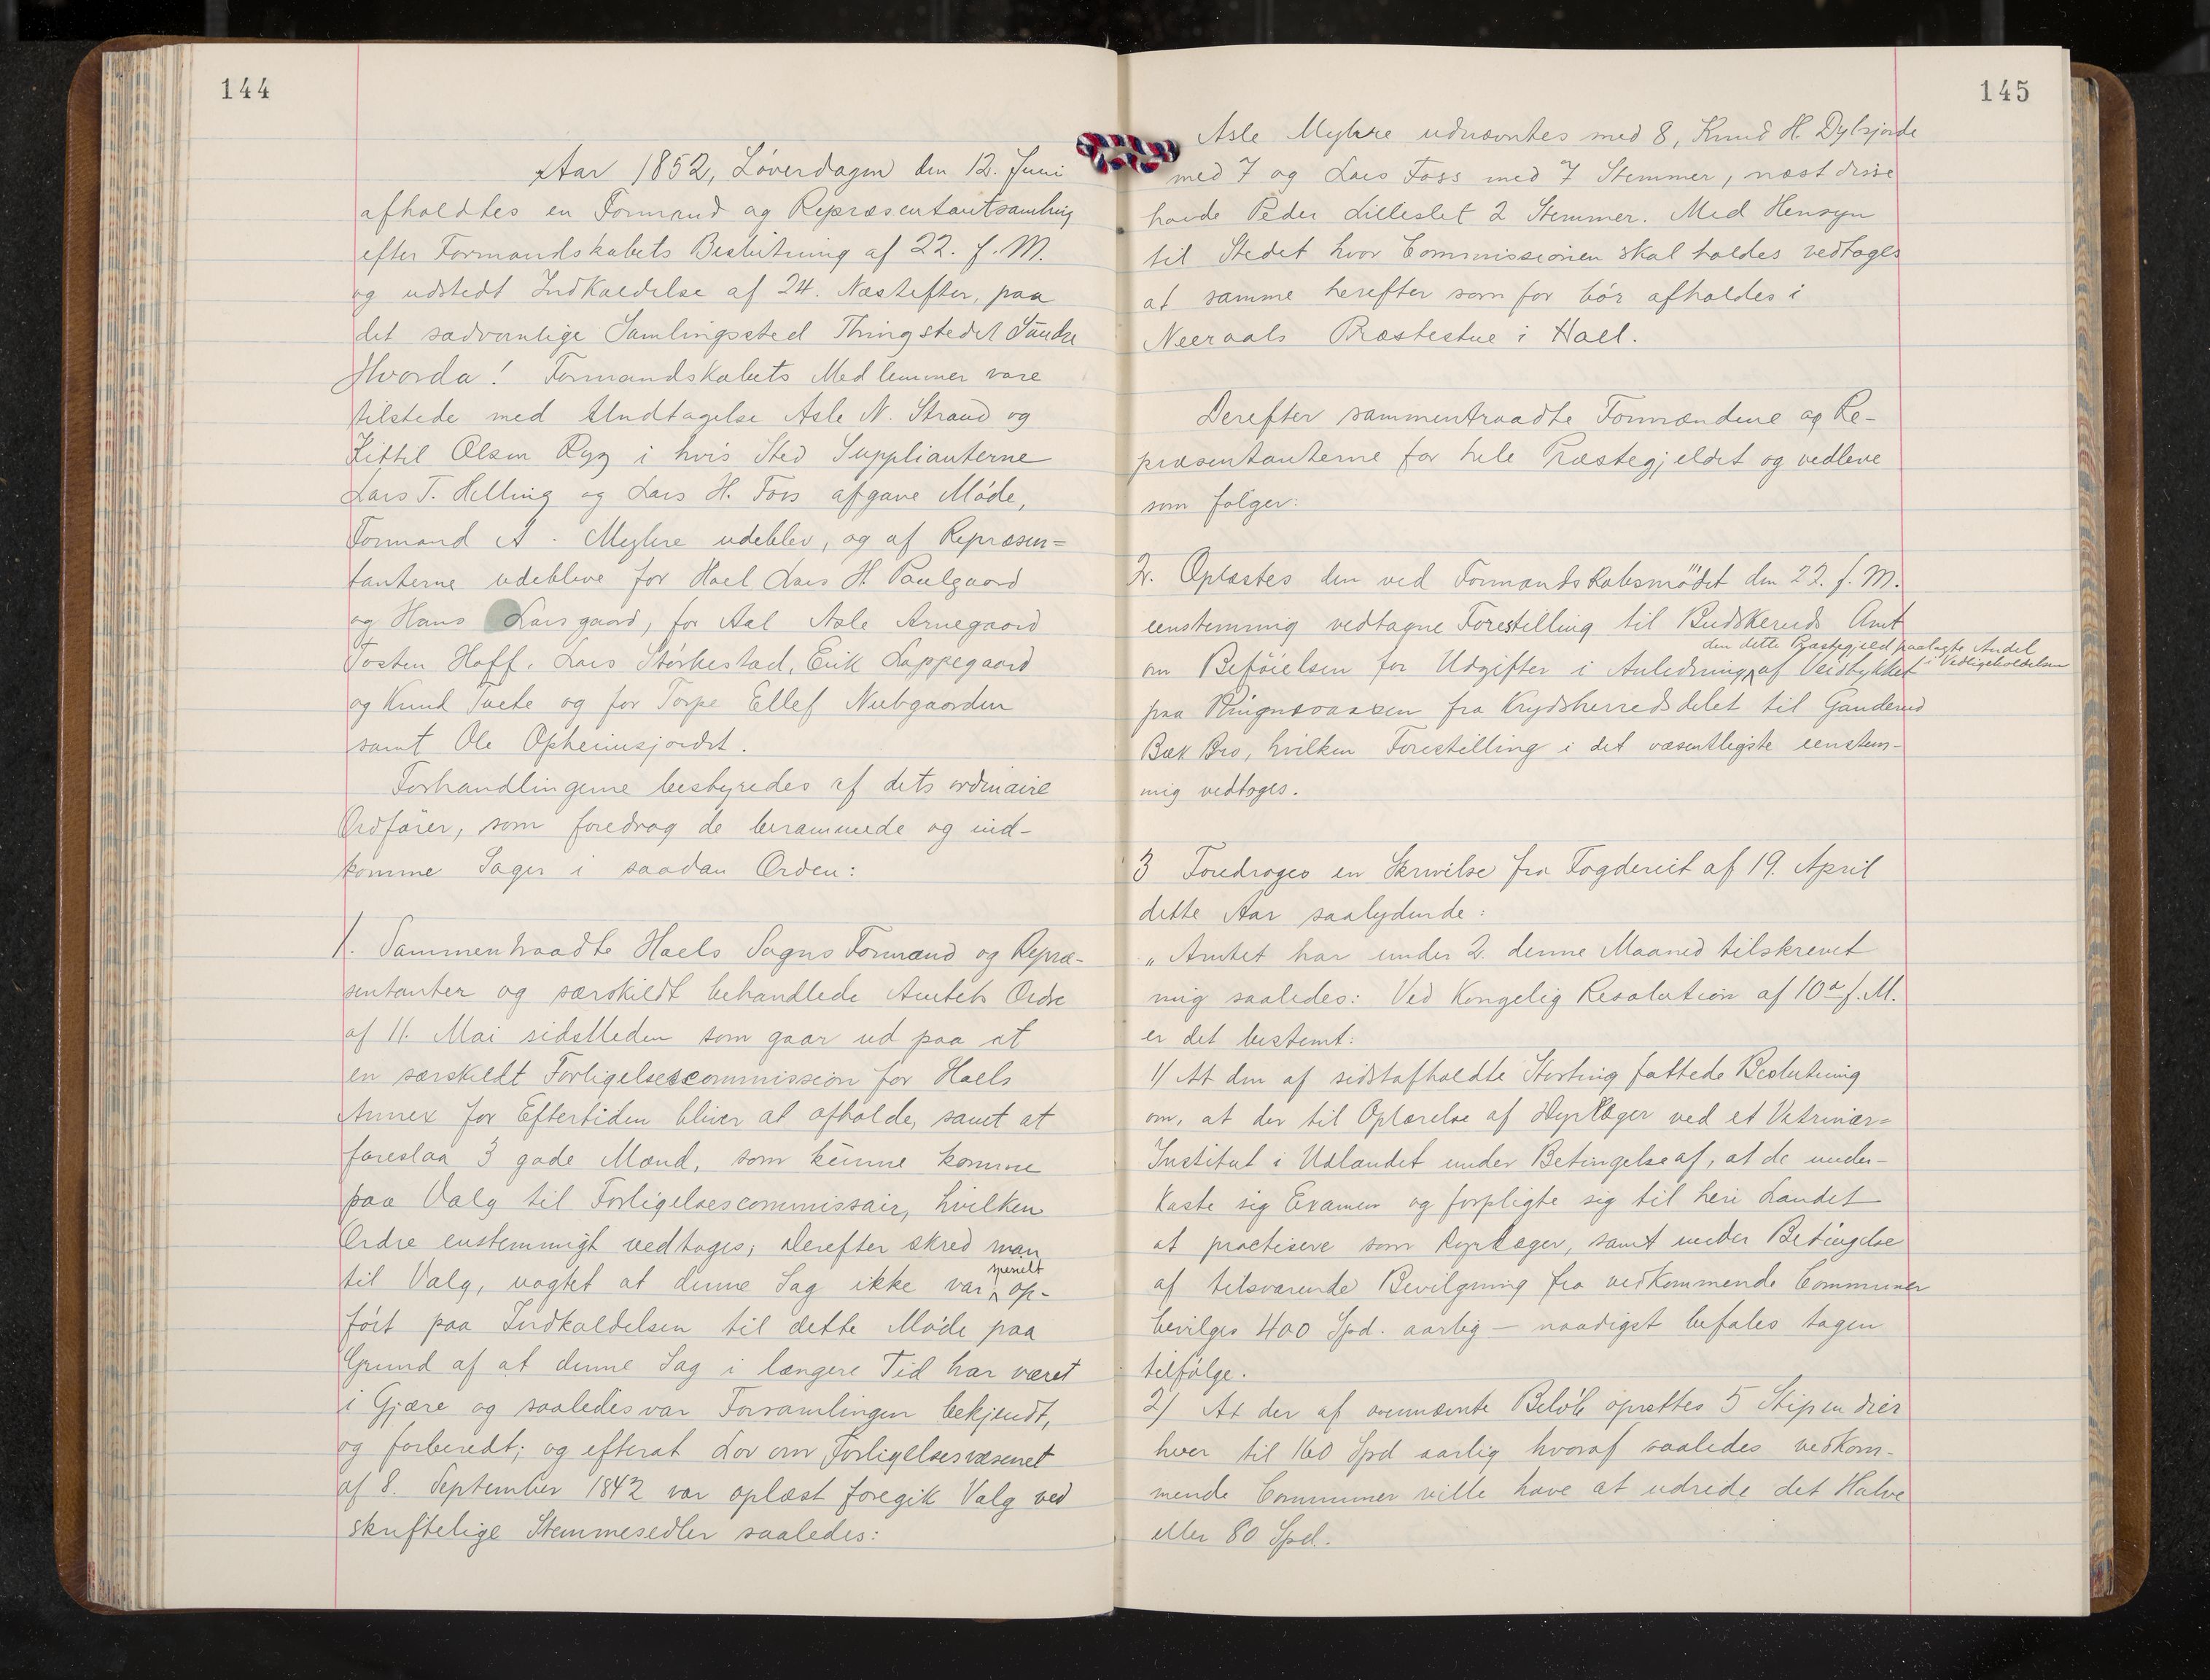 144
Aar 1852, Löverdagen den 12. Juni
afholdtes en Formand og Repræsentantsamling
efter Formandskabets Beslutning af 22. f. M.
og udstedt Indkaldelse af 24. Næstefter, paa
det sædvanlige Samlingssted Thingstedet Sundre
Hvorda! Formandskabets Medlemmer vare
tilstede med Undtagelse Asle N. Strand og
Kittil Olsen Ryg i hvis Sted Supplianterne
Lars T. Helling og Lars H. Foss afgave Möde,
Formand A. Myhre udeblev, og af Repræsen=
tanterne udebleve for Hoel Lars H. Paulgaard
og Hans Larsgaard, for Aal Asle Arnegaard
Tosten Hoff. Lars Störkestad, Erik Lappegaard
og Knud Tvete og for Torpe Ellef Nubgaarden
samt Ole Opheimsjordet.
Forhandlingerne bestyredes af dets ordinaire
Ordförer, som foredrog de berammede og ind-
komme Sager i saadan Orden:
1. Sammentraadte Hoels Sogns Formænd og Repræ-
sentanter og særskildt behandlede Amtets Ordre
af 11. Mai sidstleden som gaar ud paa at
en særskildt Forligelsescommission for Hoels
Annex for Eftertiden bliver at afholde, samt at
foreslaa 3 gode Mænd, som kunne komme
paa Valg til Forligelsescommissair, hvilken
Ordre enstemmigt vedtoges; Derefter skred man
til Valg, uagtet at denne Sag ikke var specielt op-
fört paa Indkaldelsen til dette Möde paa
Grund af at denne Sag i længere Tid har været
i Gjære og saaledes var Forsamlingen bekjendt,
og forberedt; og efterat Lov om Forligelsesvæsenet
af 8. September 1842 var oplæst foregik Valg ved
skriftelige Stemmesedler saaledes:
145
Asle Myhre udnævntes med 8, Knud H. Dylsjorde
med 7 og Lars Foss med 7 Stemmer, næst disse
havde Peder Lilleslet 2 Stemmer. Med Hensyn
til Stedet hvor Commissionen skal holdes vedtoges
at samme herefter som för bör afholdes i
Neeraals Præstestue i Hoel.
Derefter sammentraadte Formændene og Re-
præsentanterne for hele Præstegjeldet og vedleve
som fölger:
2. Oplæstes den ved Formandskabsmödet den 22. f. M.
eenstemmig vedtagne Forestilling til Budskeruds Amt
om Beföielsen for Udgifter i Anledning den dette Præstegjeld paalagte Andel i Vedligeholdelsen af Veistykket
paa Ringnesaasen fra Krydsherredsdelet til Ganderud
Bæk Bro, hvilken Forestilling i det væsentligste eenstem-
mig vedtoges.
3 Foredroges en Skrivelse fra Fogderiet af 19. April
dette Aar saalydende:
„ Amtet har under 2. denne Maaned tilskrevet
mig saaledes: Ved Kongelig Resolution af 10de f. M.
er det bestemt:
1) At den af sidstafholdte Storting fattede Beslutning
om, at der til Oplærelse af Dyrlæger ved et Vetrinær=
Institut i Udlandet under Betingelse af, at de under-
kaste sig Examen og forpligte sig til heri Landet
at practisere som Dyrlæger, samt under Betingelse
af tilsvarende Bevilgning fra vedkommende Communer
bevilges 400 Spd. aarlig – naadigst befales tagen
tilfölge.
2) At der af ovennævnte Belöb oprettes 5 Stipendier
hver til 160 Spd aarlig hvoraf saaledes vedkom-
mende Communer ville have at udrede det Halve
eller 80 Spd.